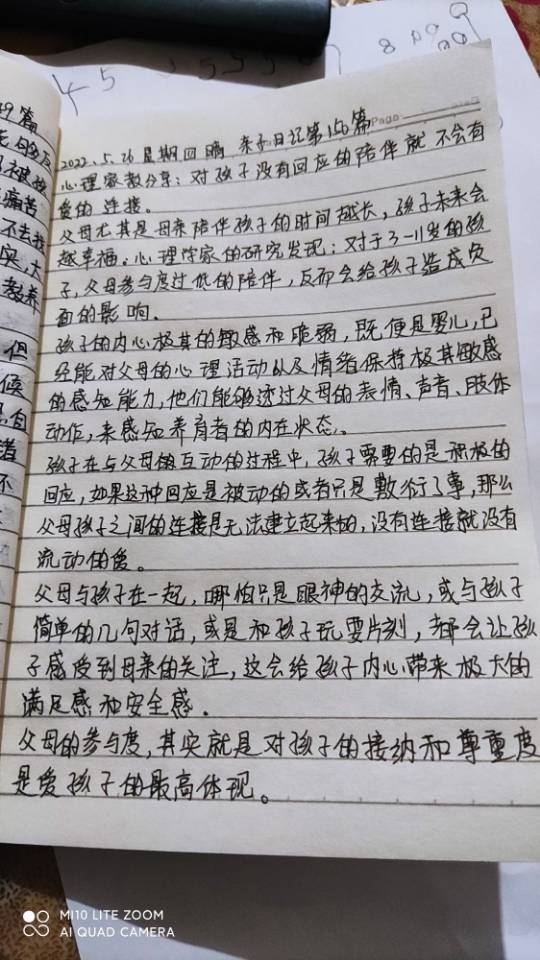 45 
8
Page
2022.5.26 星期四 晴 亲子日记第150篇
心理家教分享:对孩子没有回应的陪伴就不会有
爱的连接。
父母尤其是母亲陪伴孩子的时间越长,孩子未来会
越幸福。心理学家的研究发现:对于3-11岁的孩
子,父母参与度过低的陪伴,反而会给孩子造成负
面的影响.
孩子的内心极其的敏感和脆弱,既便是婴儿,已
经能对父母的心理活动以及情绪保持极其敏感
的感知能力,他们能够透过父母的表情、声音、肢体
动作,来感知养育者的内在状态。
孩子在与父母的互动的过程中,孩子需要的是积极的
回应,如果这种回应是被动的或者只是敷衍了事,那么
父母孩子之间的连接是无法建立起来的,没有连接就没有
流动的爱。
父母与孩子在一起,哪怕只是眼神的交流,或与孩子
简单的几句对话,或是和孩子玩耍片刻,都会让孩
子感受到母亲的关注,这会给孩子内心带来极大的
满足感和安全感.
父母的参与度,其实就是对孩子的接纳和尊重度
是爱孩子的最高体现。
9篇
被
痛苦
不去
实,大
教养
但
候
自
不
MI 10 LITE ZOOM
AI QUAD CAMERA